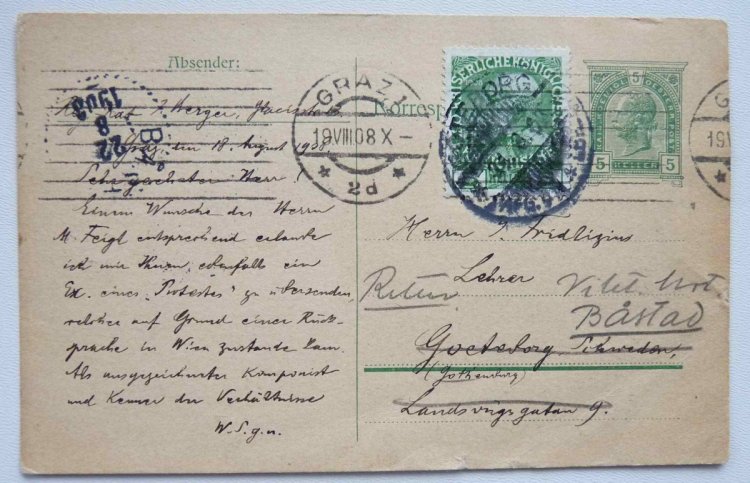 Absender:
Graz, den 18. August 1908.
Sehr geehrter Herr!
Einem Wunsche des Herrn
M. Feigl entsprechend erlaube
ich mir Ihnen, ebenfalls ein
Ex. eines "Protestes" zu übersenden,
welcher auf Grund einer Rück-
sprache in Wien zustande kam.
Als ausgezeichneter Komponist
und Kenner der Verhältnisse
W.S.g.u.
22
8
1908
GRAZ 1
19 VIII 08 X -
* 2d *
Korresp
5
5 HELLER 5
GR
19V
Herrn J. Fridlizius
Lehrer
Retur
Båstad
Goeteborg Schweden,
(Gothenburg)
Landsvägsgatan 9.